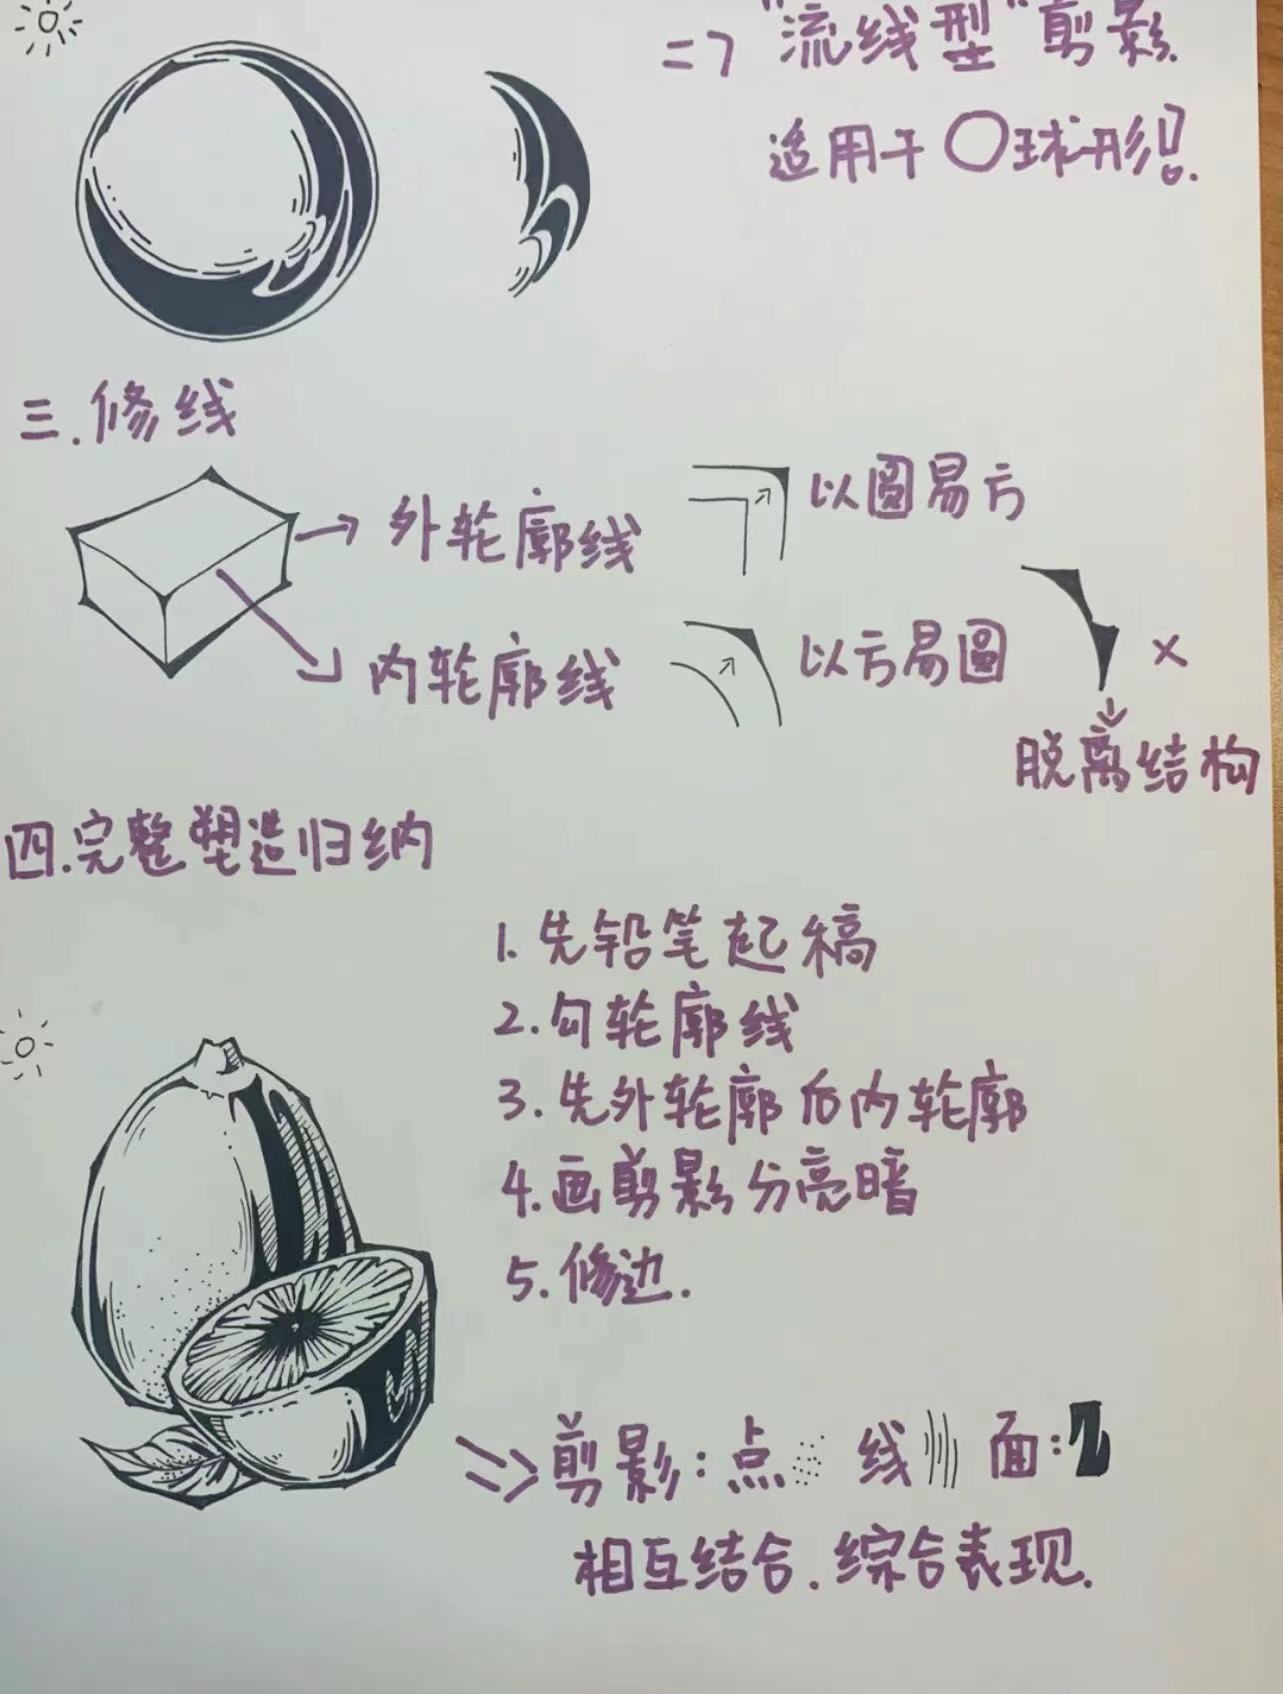 二、"流线型"剪影.
适用于○球形!.
三.修线
外轮廓线
以圆易方
内轮廓线
以方易圆
×
脱离结构
四.完整塑造归纳
1.先铅笔起稿
2.勾轮廓线
3.先外轮廓后内轮廓
4.画剪影分亮暗
5.修边.
剪影:点 线 面:
相互结合.综合表现.